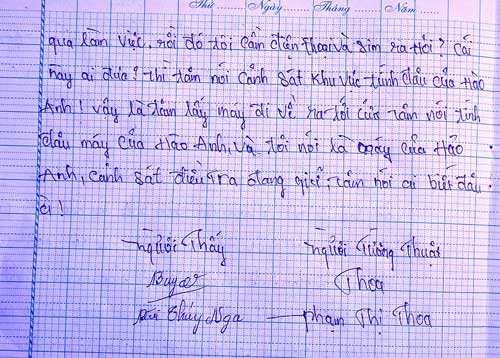 Thứ Ngày Tháng Năm
qua làm việc. rồi đó tôi cần điện thoại và sim ra hỏi? Cái
này ai đưa? thì tâm nói cảnh sát khu vực tính đầu của Hào
Anh! vậy là tâm lấy máy đi về ra tới cửa tâm nói tính
đầu máy của Hào Anh, và tôi nói là máy của Hào
Anh, cảnh sát điều tra đang giữ, tâm nói ai biết đâu
à!
người Thấy người Tường Thuật
Thoa
Bùi Thúy Nga phạm Thị Thoa